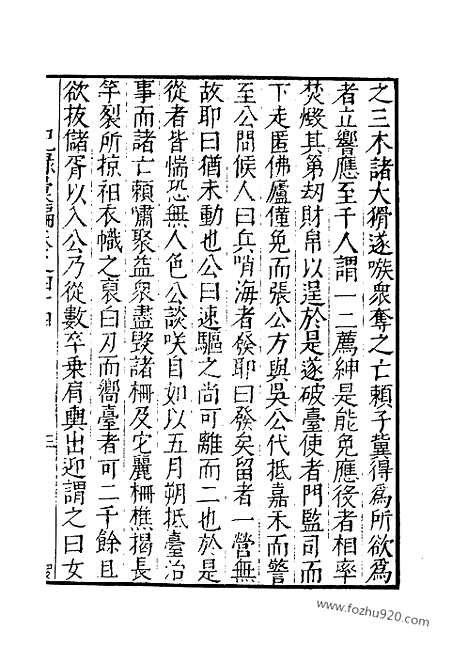 之三木諸大猾遂嗾衆奪之亡頼子冀得為所欲為
者立響應至千人謂一二薦紳是能免應役者相率
焚燬其第刼財帛以逞於是遂破臺使者門監司而
下走匿佛廬僅免而張公方與吳公代抵嘉禾而警
至公問候人曰兵哨海者發耶曰發矣留者一營無
故耶曰猶未動也公曰速驅之尚可離而二也於是
從者皆惴恐無人色公談咲自如以五月朔抵臺治
事而諸亡頼嘯聚益衆盡毀諸柵及它麗柵樵揭長
竿裂所掠袒衣幟之裒白刃而嚮臺者可二千餘且
欲㧞儲胥以入公乃從數卒乗肩輿出迎謂之曰女
紀錄彙編卷之四十四
三
www.fozhu920.com